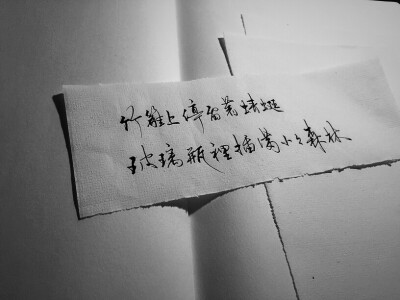 竹籬上停留著蜻蜓
玻璃瓶裡插滿小小森林